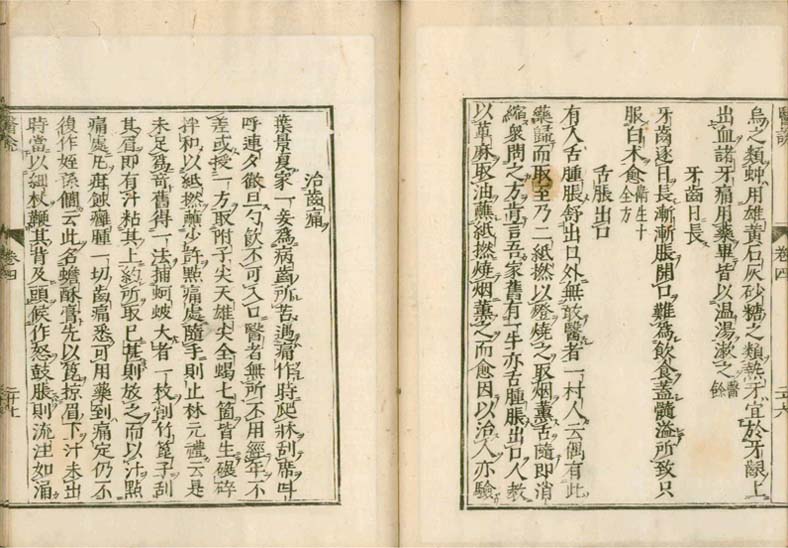 醫說 卷四 二十六
烏之類蚛用雄黃石灰砂糖之類熱牙宜於牙齦上
出血諸牙痛用藥畢皆以溫湯漱之 醫餘
牙齒日長
牙齒逐日長漸漸脹開口難爲飲食蓋髓溢所致只
服白朮愈 衛生十全方
舌脹出口
有人舌腫脹舒出口外無敢醫者一村人云偶有此
藥歸而取至乃二紙撚以燈燒之取烟薰舌隨即消
縮衆問之方肯言吾家舊有一牛亦舌腫脹出口人教
以萆麻取油蘸紙撚燒烟薰之而愈因以治人亦驗
治齒痛
葉景夏家一妾爲病齒所苦遇痛作時爬牀刮席叫
呼連夕徹旦勺飲不可入口醫者無所不用經年不
差或授一方取附子尖天雄尖全蝎七箇皆生碾碎
拌和以紙撚蘸少許點痛處隨手則止林元禮云是
未足爲奇舊得一法捕蚵蚾大者一枚削竹篦子刮
其眉即有汁粘其上約所取已甚則放之而以汁點
痛處凡疳蝕癰腫一切齒痛悉可用藥到痛定仍不
復作姪孫僩云此名蟾酥膏先以篦掠眉下汁未出
時當以細杖鞭其背及頭候作怒鼓脹則流注如湧
醫說 卷四 二十七